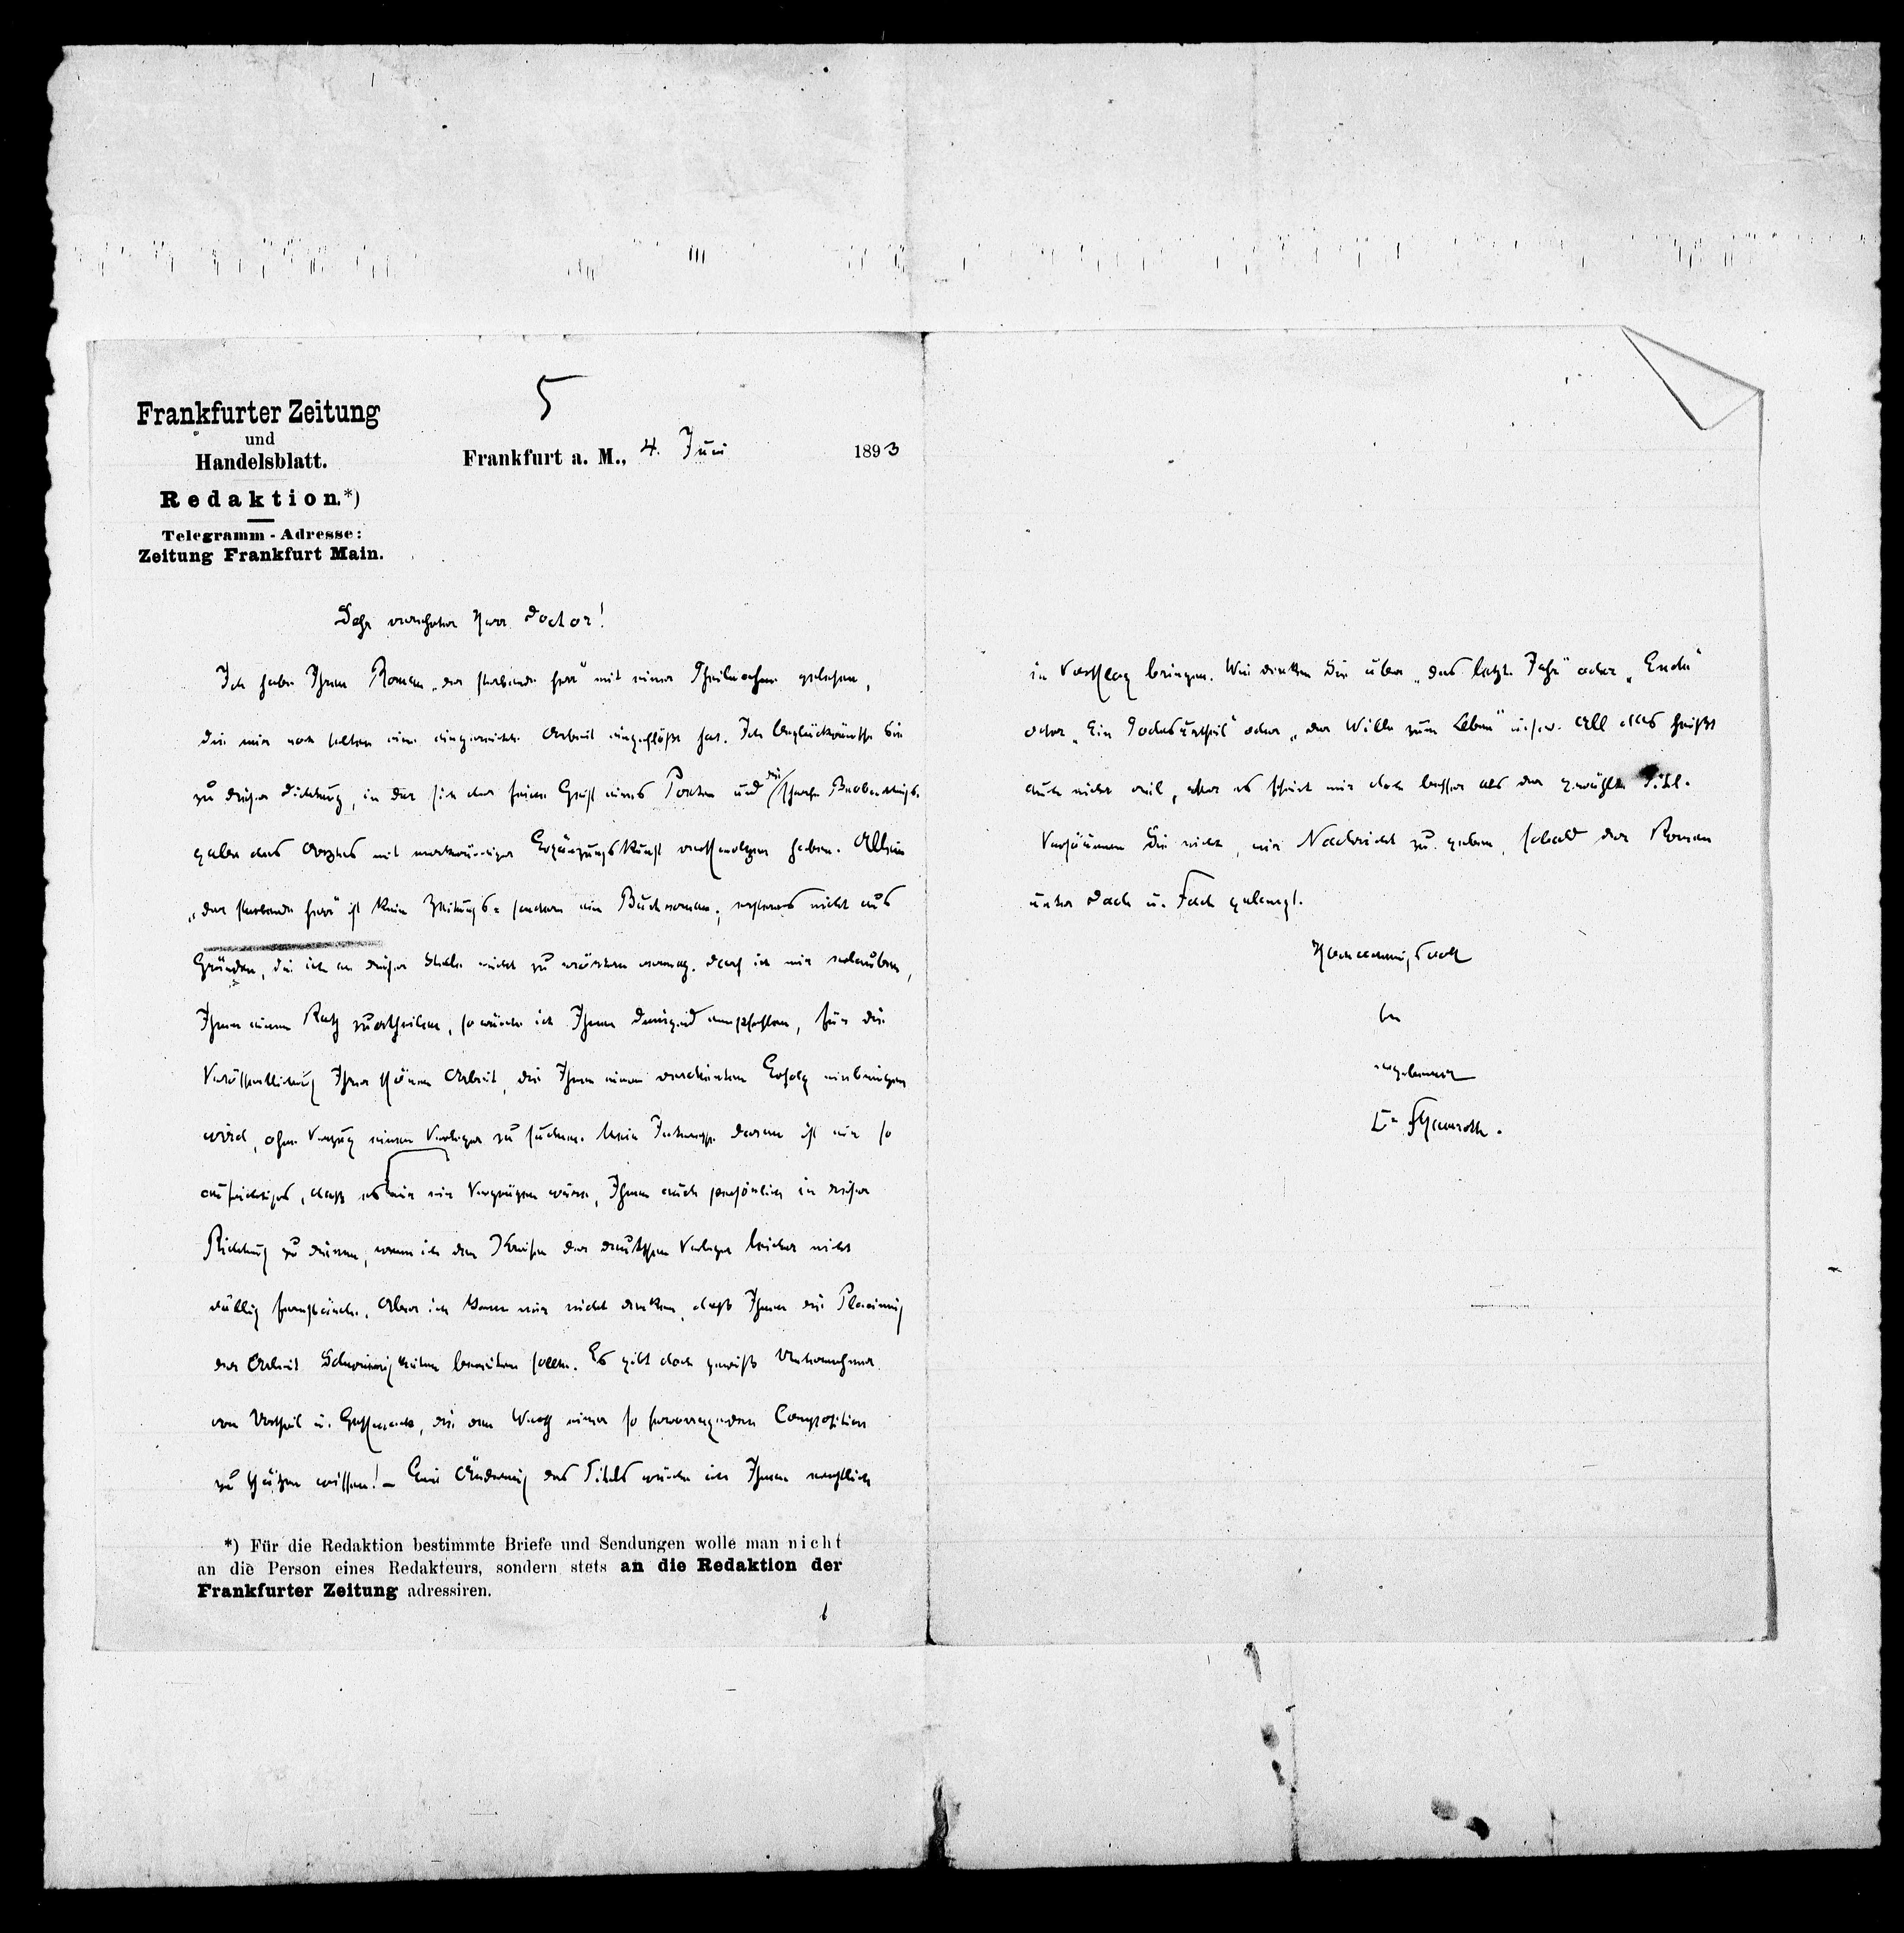 5
Frankfurter Zeitung
und
Handelsblatt.
Redaktion.*)
Telegramm - Adresse:
Zeitung Frankfurt Main.
Frankfurt a. M., 4. Juni 1893
Sehr verehrter Herr Doctor!
Ich habe Ihren Roman „der sterbende Herr“ mit einer Theilnahme gelesen,
die mir noch selten eine eingereichte Arbeit eingeflößt hat. Ich beglückwünsche Sie
zu dieser Dichtung, in der sich der feine Geist eines Poeten und die scharfe Beobachtungs-
gabe des Arztes mit merkwürdiger Ergänzungskunst verschmolzen haben. Allein
„der sterbende Herr“ ist kein Zeitungs- sondern ein Buchroman; ersteres nicht aus
Gründen, die ich an dieser Stelle nicht zu erörtern vermag. Darf ich mir erlauben,
Ihnen einen Rath zu ertheilen, so würde ich Ihnen dringend empfehlen, für die
Veröffentlichung Ihrer schönen Arbeit, die Ihnen einen verdienten Erfolg einbringen
wird, ohne Verzug einen Verleger zu suchen. Mein Interesse daran ist ein so
aufrichtiges, daß es mir ein Vergnügen wäre, Ihnen auch persönlich in dieser
Richtung zu dienen, wenn ich den Kreisen der deutschen Verleger leider nicht
völlig fernstände. Aber ich kann mir nicht denken, daß Ihnen die Placirung
der Arbeit Schwierigkeiten bereiten sollte. Es gibt doch gewiß Unternehmer
von Urtheil u. Geschmack, die den Werth einer so hervorragenden Composition
zu schätzen wissen! – Eine Änderung des Titels würde ich Ihnen
*) Für die Redaktion bestimmte Briefe und Sendungen wolle man nicht
an die Person eines Redakteurs, sondern stets an die Redaktion der
Frankfurter Zeitung adressiren.
in Vorschlag bringen. Wie denken Sie über „das letzte Jahr“ oder „Ende“
oder „Ein Todesurtheil“ oder „der Wille zum Leben“ u.s.w. All das heißt
auch nicht viel, aber es scheint mir doch besser als der gewählte Titel.
Versäumen Sie nicht, mir Nachricht zu geben, sobald der Roman
unter Dach u. Fach gelangt.
Hochachtungsvoll
Ihr
ergebener